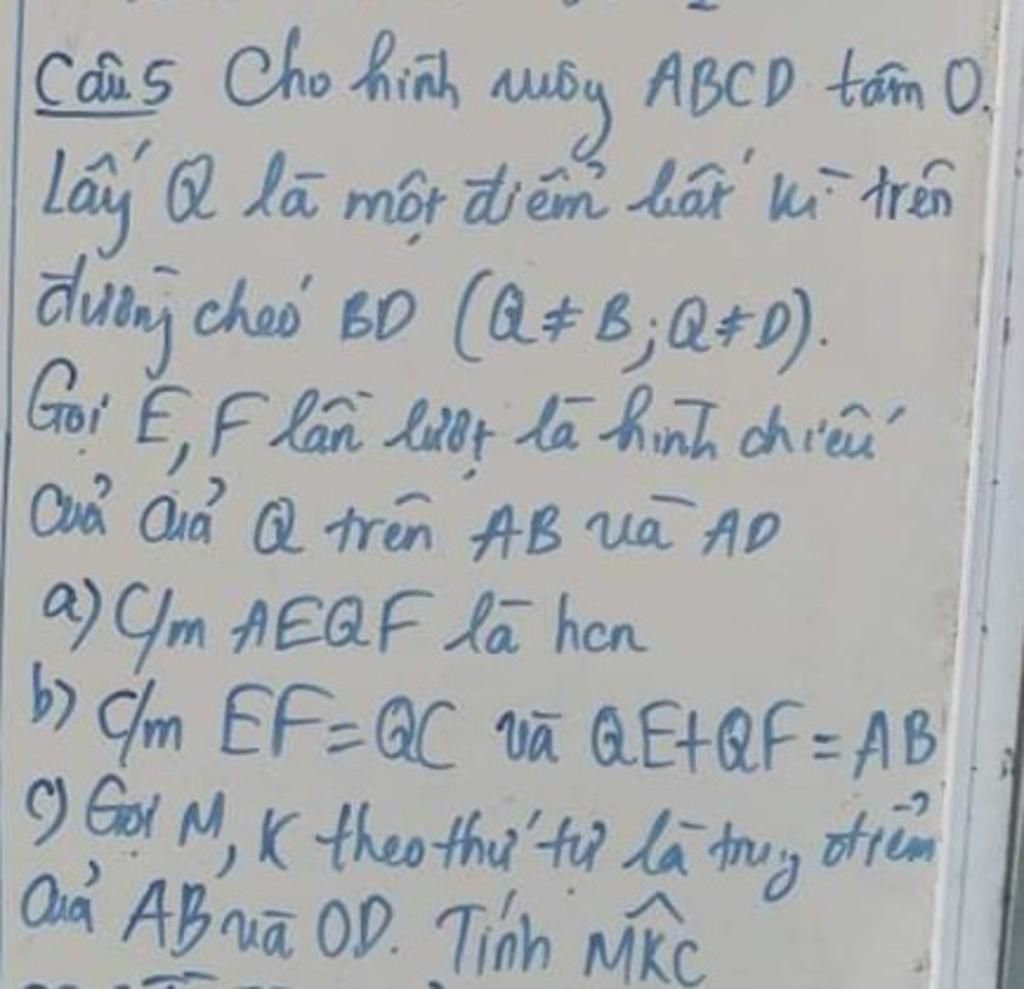 Câu 5 Cho hình vuông ABCD tâm O.
Lấy Q là một điểm bất kì trên
đường chéo BD (Q ≠ B; Q ≠ D).
Gọi E, F lần lượt là hình chiếu
của của Q trên AB và AD
a) C/m AEQF là hcn
b) C/m EF = QC và QE + QF = AB
c) Gọi M, K theo thứ tự là trung điểm
của AB và OD. Tính M̂KC